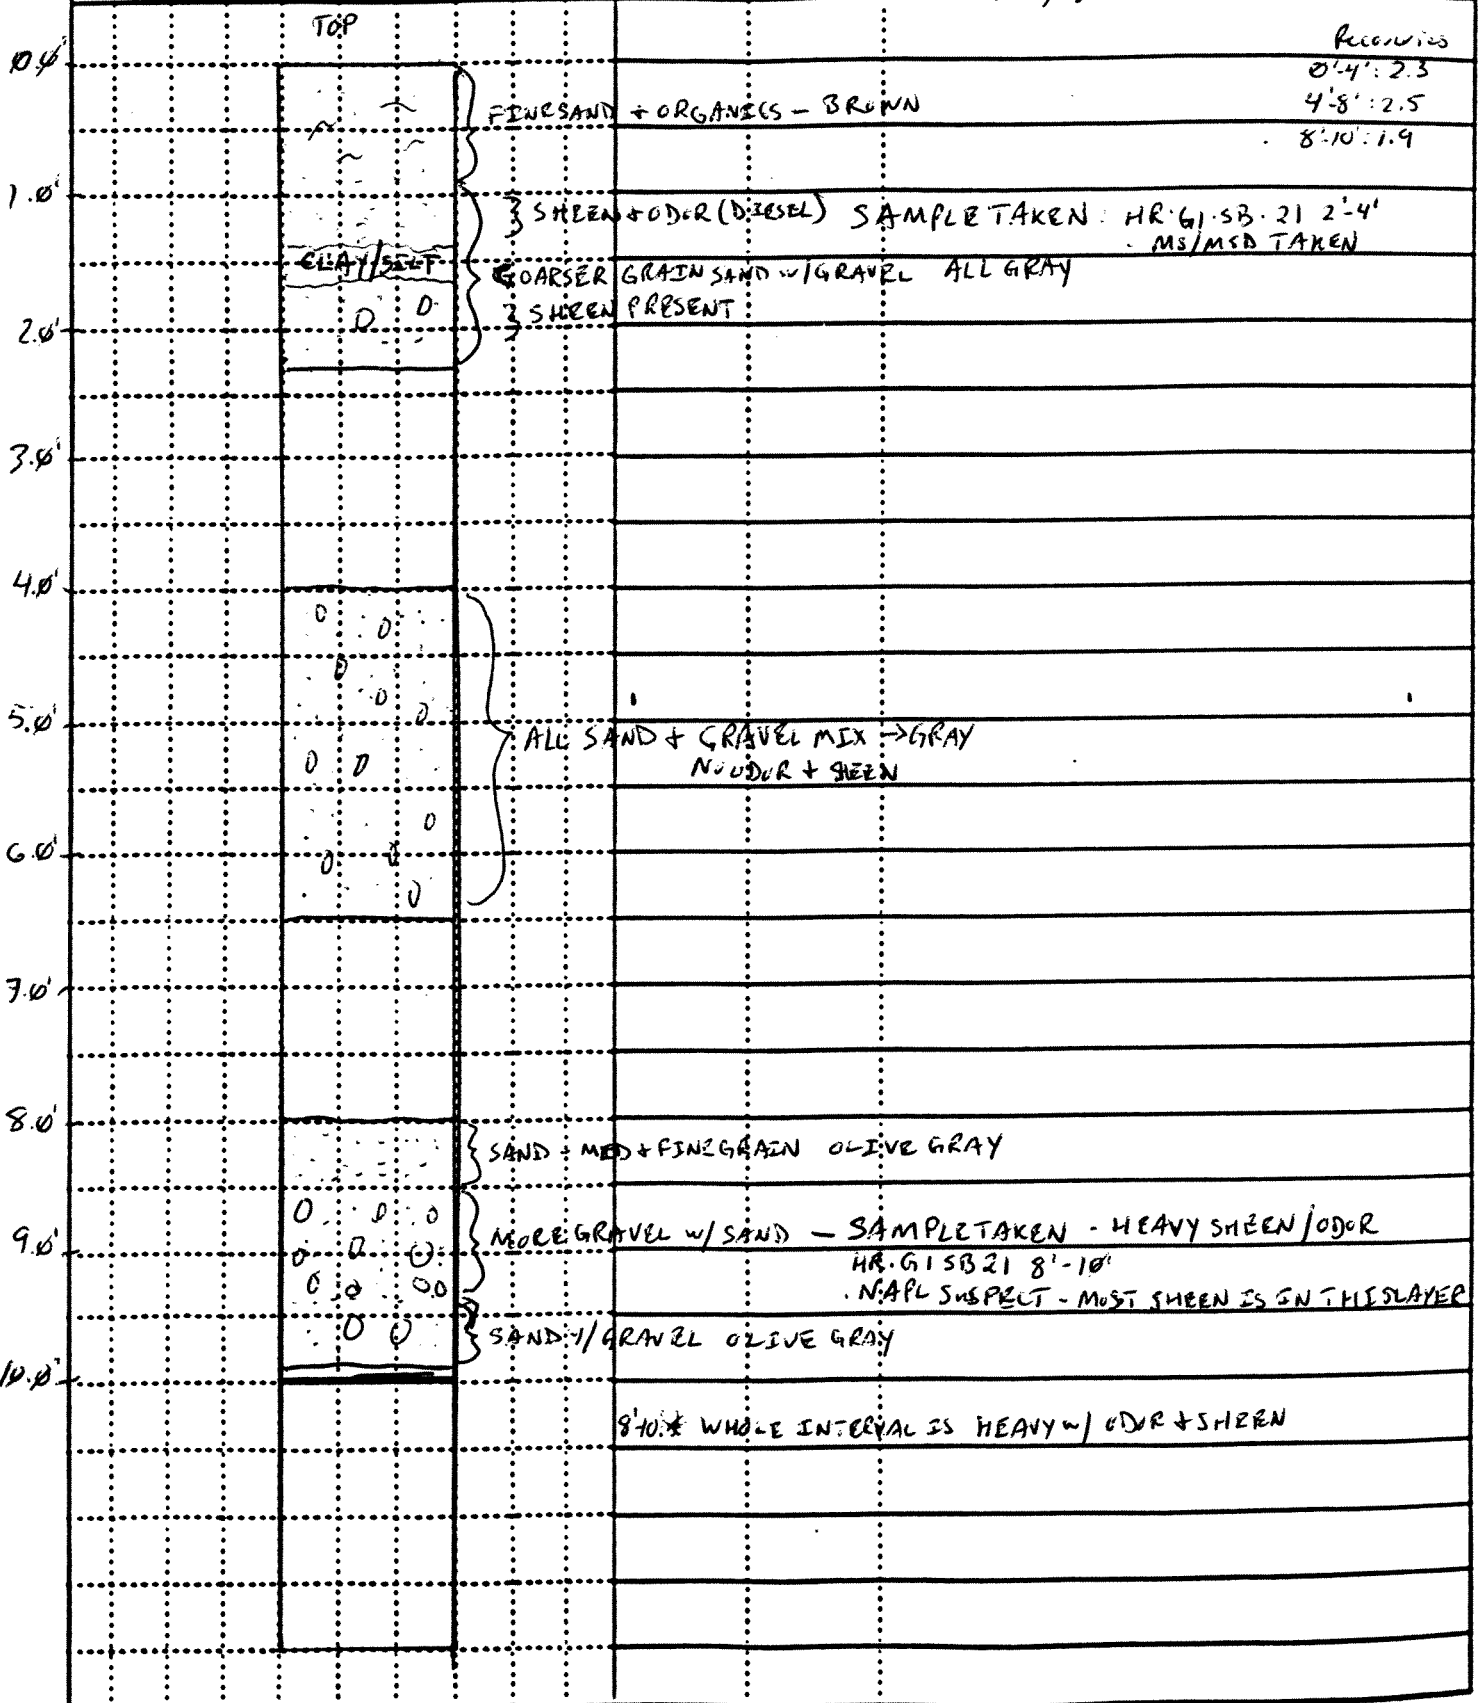 TOP
Recoveries
0.0'
0'-4': 2.3
4'-8': 2.5
FINE SAND + ORGANICS - BROWN
8'-10': 1.9
1.0'
} SHEEN + ODOR (DIESEL) SAMPLE TAKEN: HR·G1·SB·21 2'-4'
· MS/MSD TAKEN
CLAY/SILT
COARSER GRAIN SAND w/GRAVEL ALL GRAY
} SHEEN PRESENT
2.0'
3.0'
4.0'
5.0'
ALL SAND + GRAVEL MIX → GRAY
NO ODOR + SHEEN
6.0'
7.0'
8.0'
SAND - MED + FINE GRAIN OLIVE GRAY
MORE GRAVEL w/ SAND — SAMPLE TAKEN - HEAVY SHEEN/ODOR
9.0'
HR·G1SB21 8'-10'
· NAPL SUSPECT - MOST SHEEN IS IN THIS LAYER
SAND w/GRAVEL OLIVE GRAY
10.0'
8'-10' * WHOLE INTERVAL IS HEAVY w/ ODOR + SHEEN